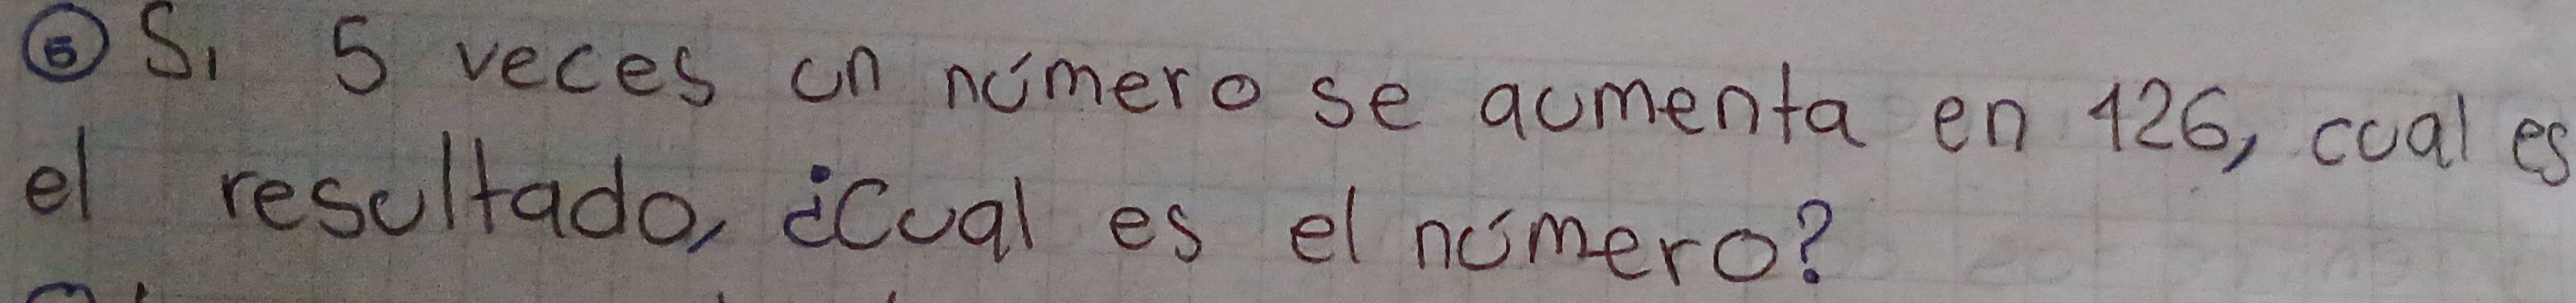 ⑤ Si 5 veces un número se aumenta en 126, cual es
el resultado, ¿Cual es el número?